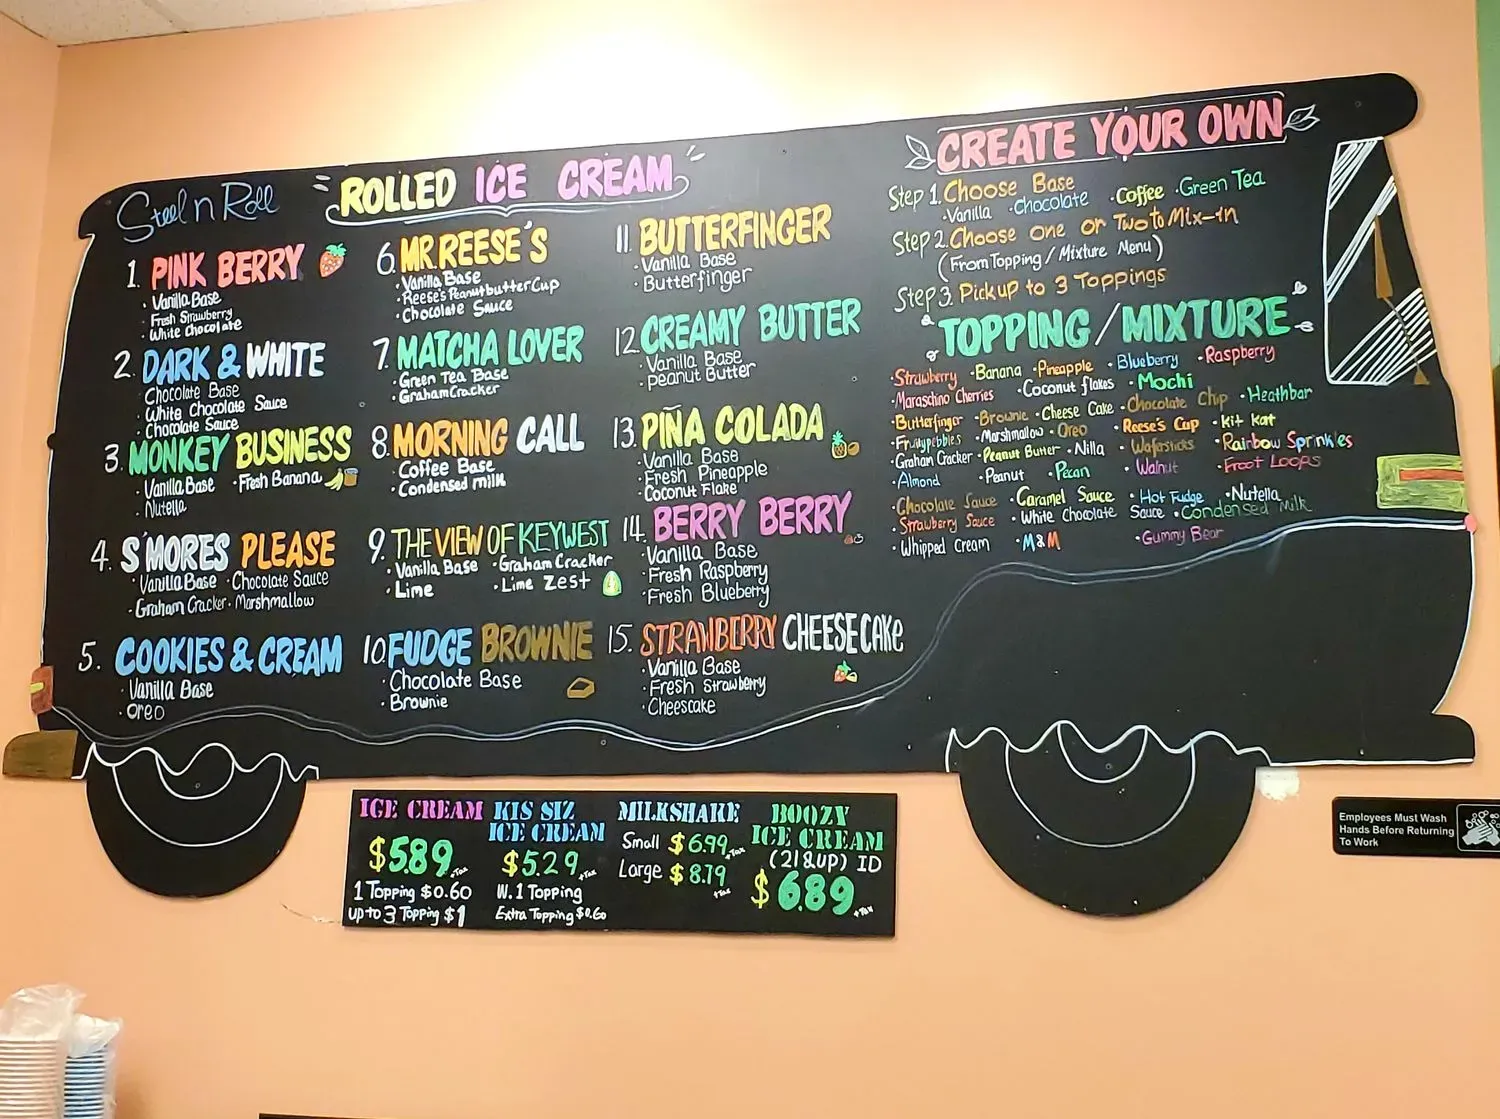 Steel n Roll
ROLLED ICE CREAM
1. PINK BERRY
· Vanilla Base
· Fresh Strawberry
· White Chocolate
2. DARK & WHITE
· Chocolate Base
· White Chocolate Sauce
· Chocolate Sauce
3. MONKEY BUSINESS
· Vanilla Base · Fresh Banana
· Nutella
4. S'MORES PLEASE
· Vanilla Base · Chocolate Sauce
· Graham Cracker · Marshmallow
5. COOKIES & CREAM
· Vanilla Base
· Oreo
6. MR. REESE'S
· Vanilla Base
· Reese's Peanutbutter Cup
· Chocolate Sauce
7. MATCHA LOVER
· Green Tea Base
· Graham Cracker
8. MORNING CALL
· Coffee Base
· Condensed milk
9. THE VIEW OF KEYWEST
· Vanilla Base · Graham Cracker
· Lime · Lime Zest
10. FUDGE BROWNIE
· Chocolate Base
· Brownie
11. BUTTERFINGER
· Vanilla Base
· Butterfinger
12. CREAMY BUTTER
· Vanilla Base
· Peanut Butter
13. PIÑA COLADA
· Vanilla Base
· Fresh Pineapple
· Coconut Flake
14. BERRY BERRY
· Vanilla Base
· Fresh Raspberry
· Fresh Blueberry
15. STRAWBERRY CHEESECAKE
· Vanilla Base
· Fresh Strawberry
· Cheescake
CREATE YOUR OWN
Step 1. Choose Base
· Vanilla · Chocolate · Coffee · Green Tea
Step 2. Choose one or Two to Mix-in
(From Topping / Mixture Menu)
Step 3. Pick up to 3 Toppings
TOPPING / MIXTURE
· Strawberry · Banana · Pineapple · Blueberry · Raspberry
· Maraschino Cherries · Coconut flakes · Mochi
· Butterfinger · Brownie · Cheese Cake · Chocolate Chip · Heathbar
· Fruitypebbles · Marshmallow · Oreo · Reese's Cup · Kit Kat
· Graham Cracker · Peanut Butter · Nilla · Wafersticks · Rainbow Sprinkles
· Almond · Peanut · Pecan · Walnut · Froot Loops
· Chocolate Sauce · Caramel Sauce · Hot Fudge · Nutella
· Strawberry Sauce · White Chocolate Sauce · Condensed Milk
· Whipped Cream · M&M · Gummy Bear
ICE CREAM
$5.89 +Tax
1 Topping $0.60
up to 3 Topping $1
KIS SIZ
ICE CREAM
$5.29 +Tax
W. 1 Topping
Extra Topping $0.60
MILKSHAKE
Small $6.99 +Tax
Large $8.79 +Tax
BOOZY
ICE CREAM
(21&UP) ID
$6.89 +Tax
Employees Must Wash
Hands Before Returning
To Work